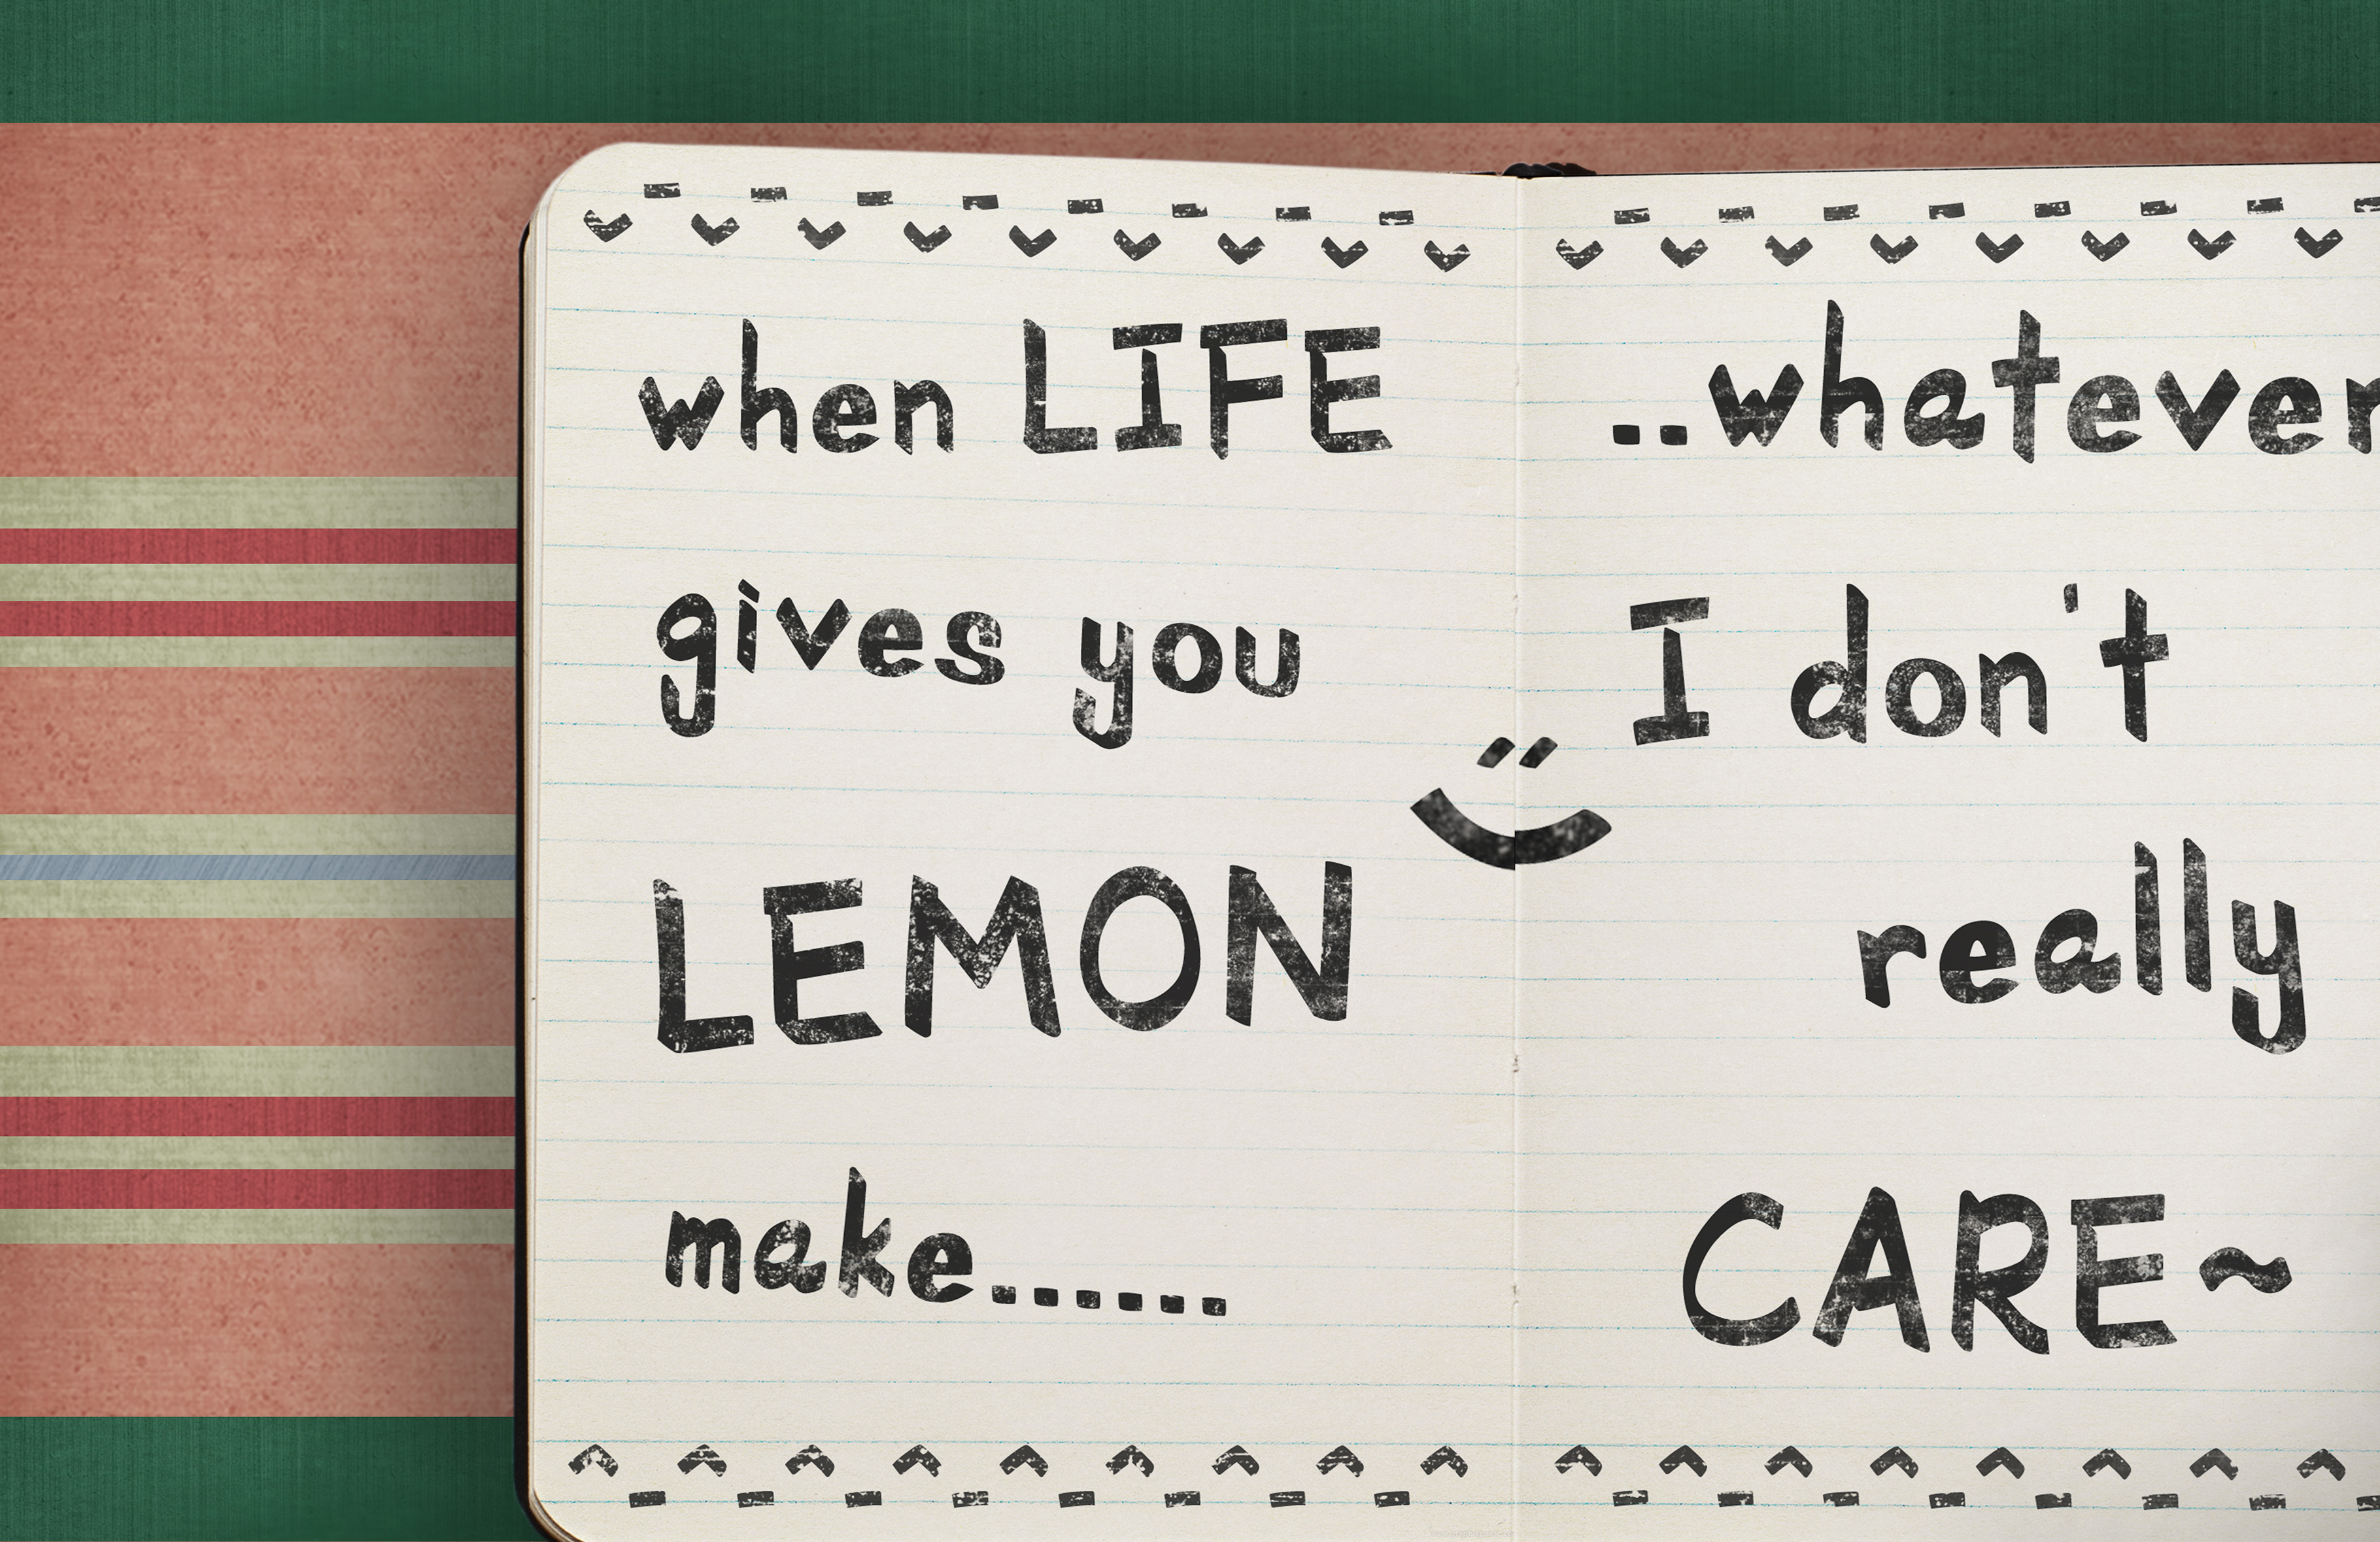 when LIFE
gives you
LEMON
make......
..whatever
I don't
really
CARE~